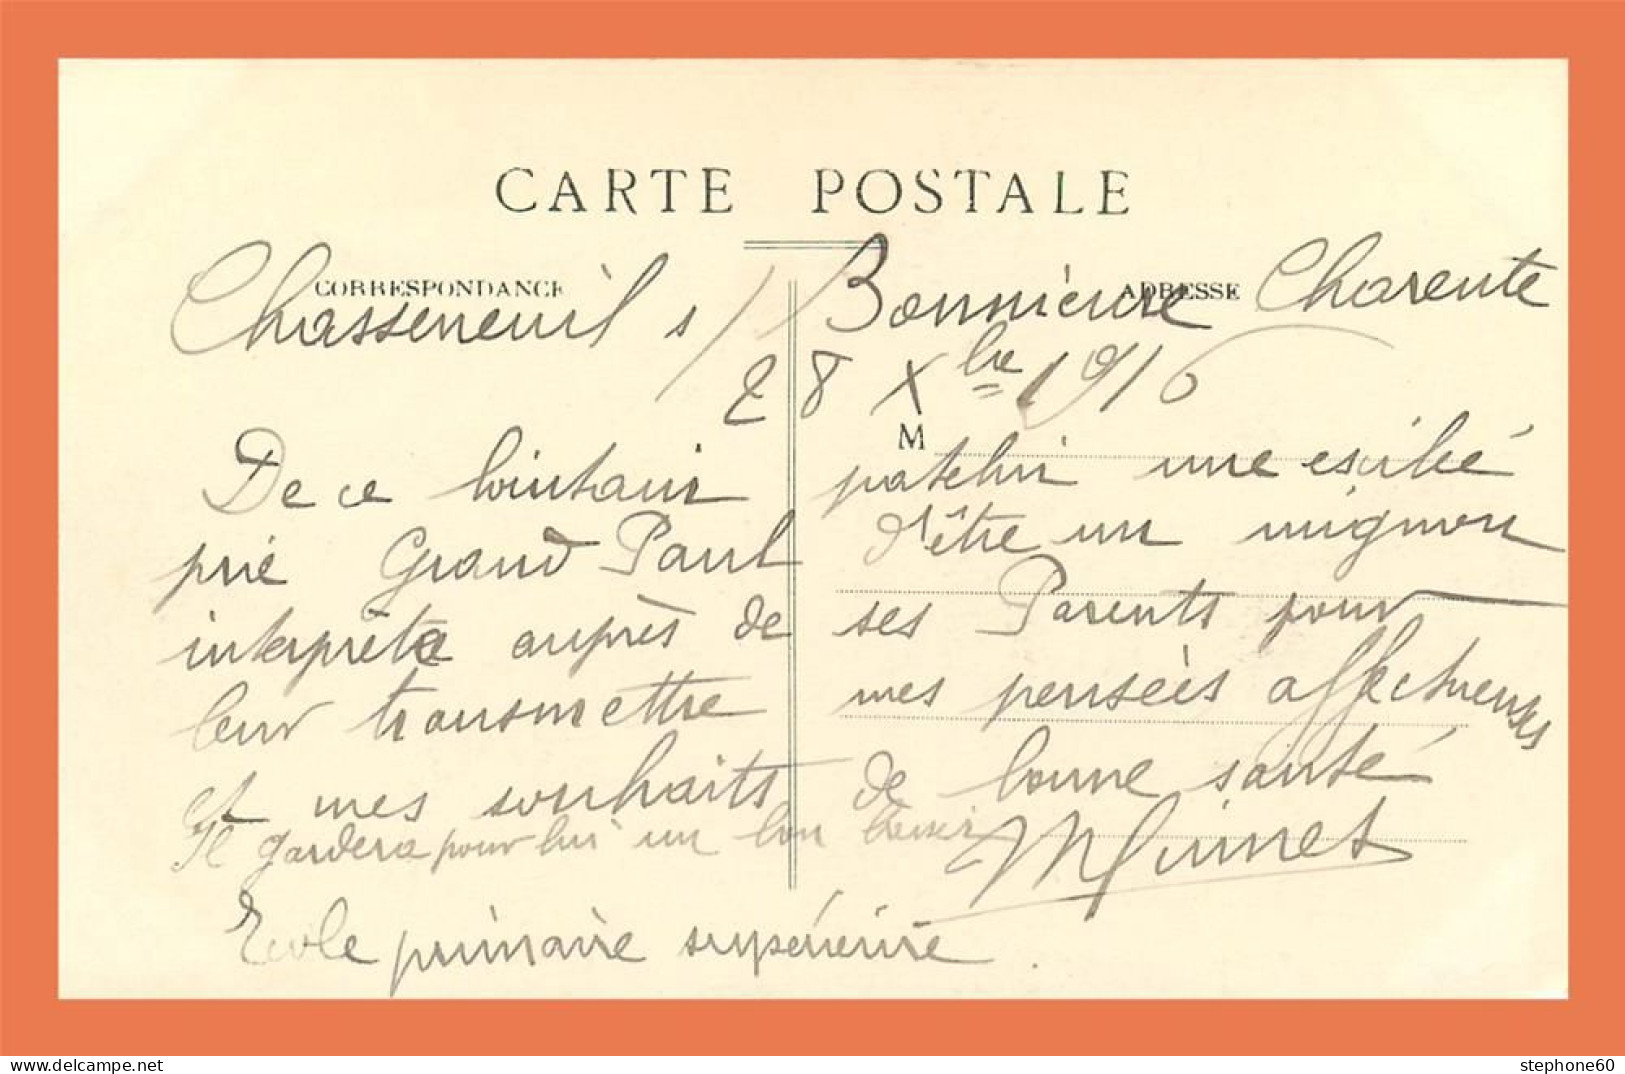 CARTE POSTALE
CORRESPONDANCE
ADRESSE
Chasseneuil s/ Bonnieure Charente
28 Xbre 1916
M
De ce lointain patelin une exilée
prie Grand Paul d'être un mignon
interprète auprès de ses Parents pour
leur transmettre mes pensées affectueuses
et mes souhaits de bonne santé
Il gardera pour lui un bon baiser
Ecole primaire supérieure.
stephone60
www.delcampe.net